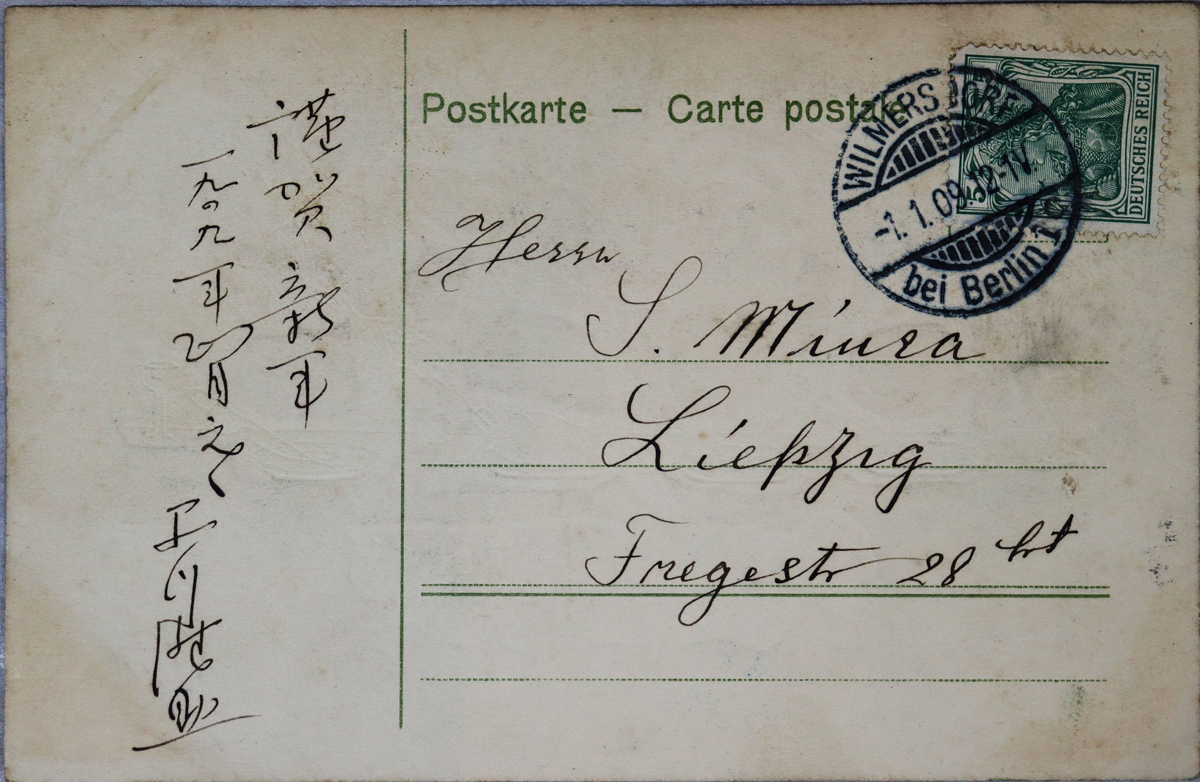 謹賀新年
一九〇九年正月元旦
Postkarte — Carte postale
WILMERSDORF
-1.1.09.12-1V.
bei Berlin 1
DEUTSCHES REICH
Herrn
S. Miura
Liepzig
Fregestr 28